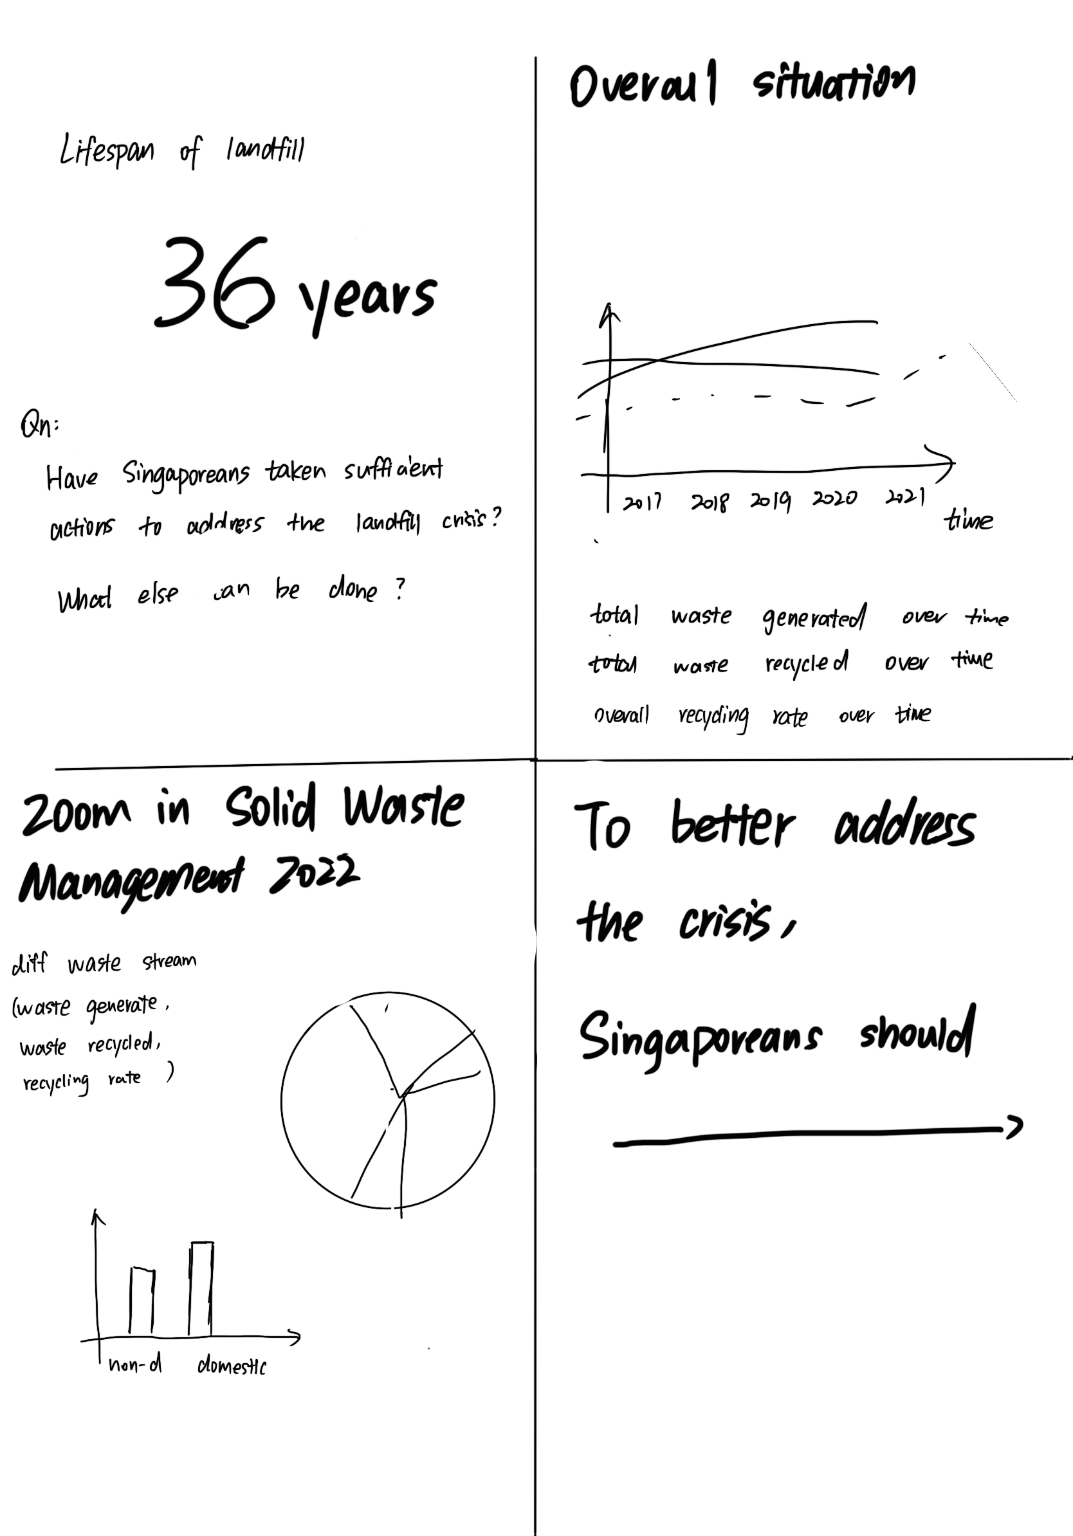 Lifespan of landfill
36 years
Qn:
Have Singaporeans taken sufficient
actions to address the landfill crisis?
What else can be done?
Overall situation
2017 2018 2019 2020 2021
time
total waste generated over time
total waste recycled over time
overall recycling rate over time
Zoom in Solid Waste
Management 2022
diff waste stream
(waste generate,
waste recycled,
recycling rate )
non-d domestic
To better address
the crisis,
Singaporeans should